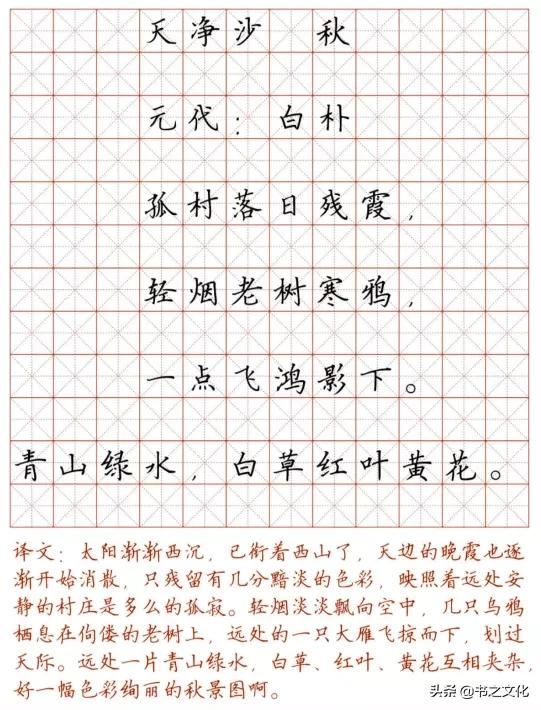 天净沙 秋
元代：白朴
孤村落日残霞，
轻烟老树寒鸦，
一点飞鸿影下。
青山绿水，白草红叶黄花。
译文：太阳渐渐西沉，已衔着西山了，天边的晚霞也逐
渐开始消散，只残留有几分黯淡的色彩，映照着远处安
静的村庄是多么的孤寂。轻烟淡淡飘向空中，几只乌鸦
栖息在佝偻的老树上，远处的一只大雁飞掠而下，划过
天际。远处一片青山绿水，白草、红叶、黄花互相夹杂，
好一幅色彩绚丽的秋景图啊。
头条 @书之文化